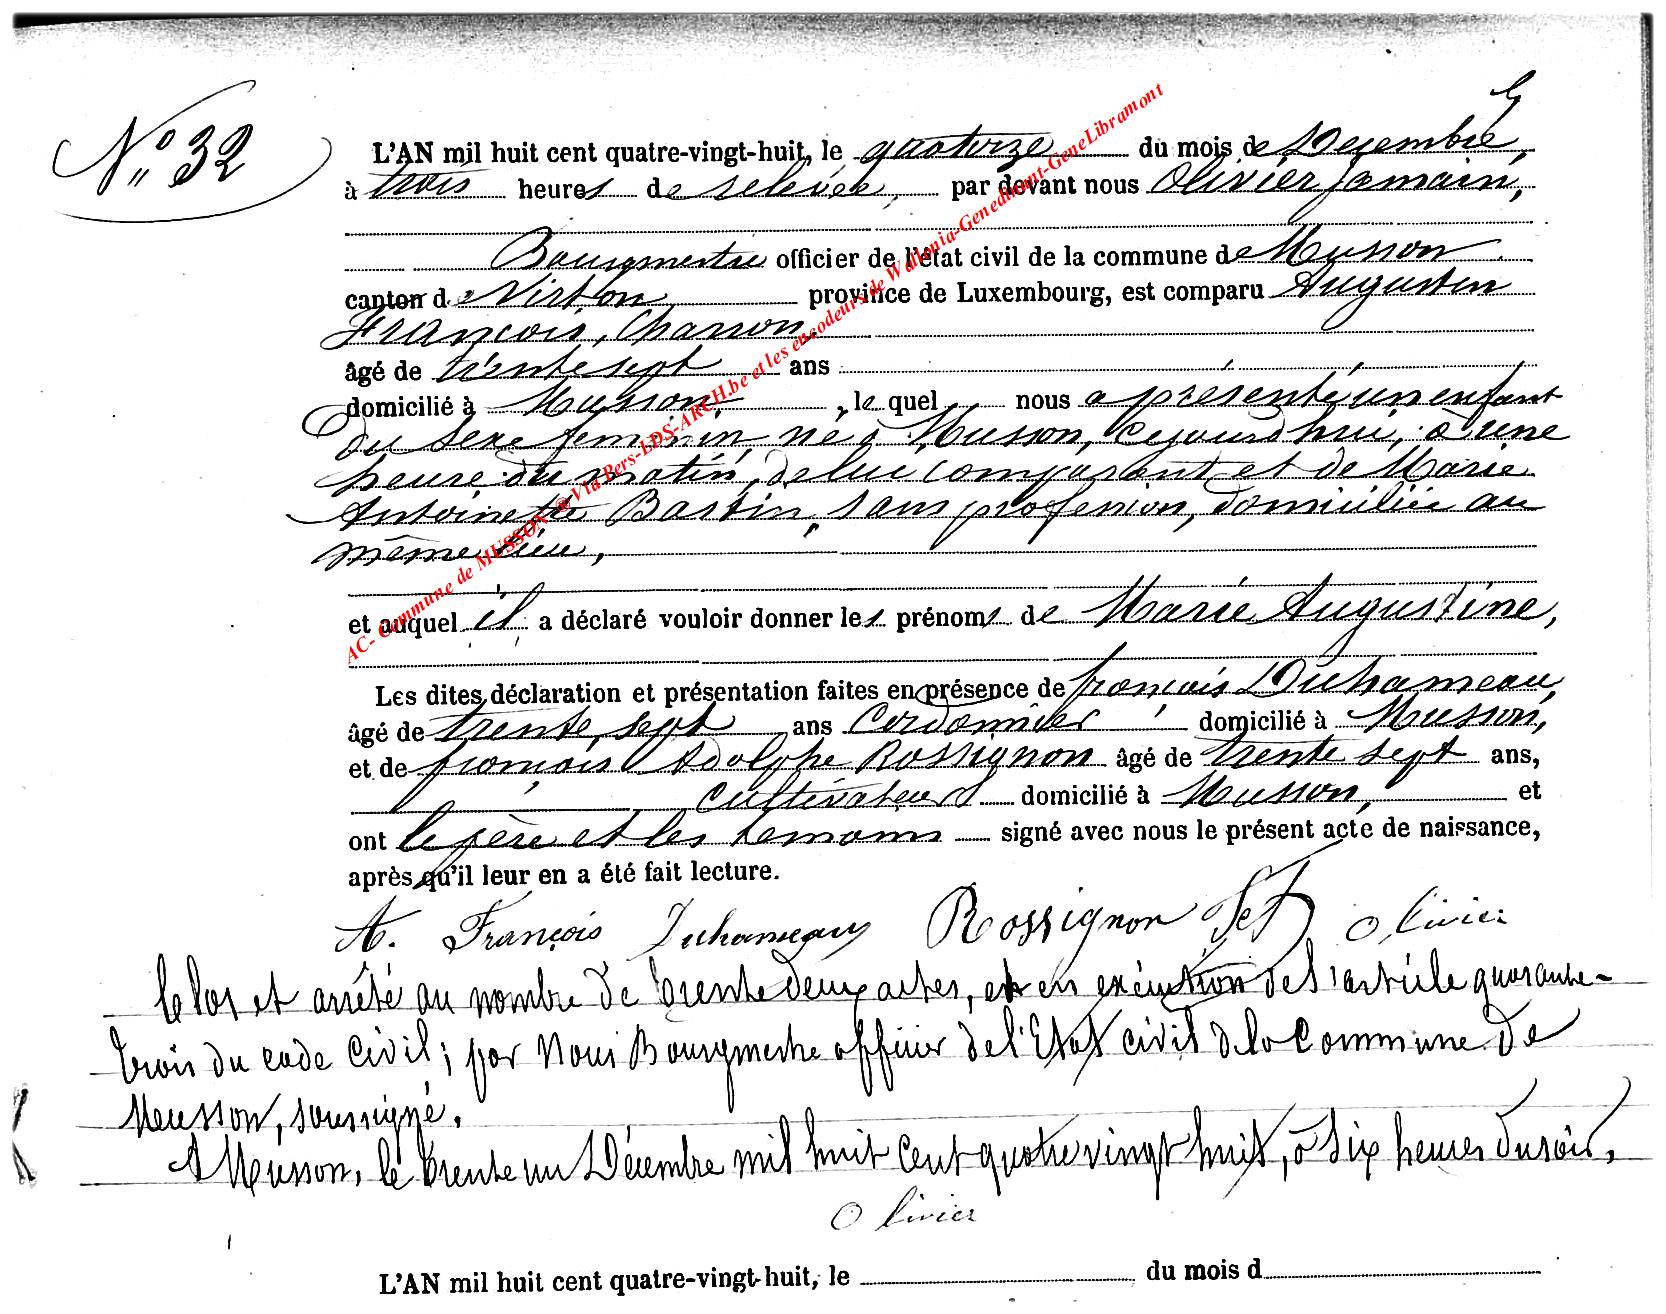 N° 32
L'AN mil huit cent quatre-vingt-huit, le quatorze du mois de Decembre,
à trois heures de relevée, par devant nous Olivier Jamain,
Bourgmestre officier de l'état civil de la commune de Musson
canton de Virton province de Luxembourg, est comparu Augustin
François, Charron,
âgé de trente sept ans
domicilié à Musson, le quel nous a présenté un enfant
du sexe feminin, né à Musson, cejourd'hui, à une
heure du matin, de lui comparant et de Marie
Antoinette Bastin, sans profession, domiciliée au
même lieu,
et auquel il a déclaré vouloir donner les prénoms de Marie Augustine,
Les dites déclaration et présentation faites en présence de françois Duhameau,
âgé de trente sept ans Cordonnier domicilié à Musson,
et de françois Adolphe Rossignon âgé de trente sept ans,
Cultivateur domicilié à Musson, et
ont le père et les temoins signé avec nous le présent acte de naissance,
après qu'il leur en a été fait lecture.
A. François Duhameau Rossignon Olivier
Clos et arrêté au nombre de trente deux actes, et en exécution de l'article quarante-
trois du code civil; par Nous Bourgmestre officier de l'Etat civil de la Commune de
Musson, soussigné.
A Musson, le trente un Décembre mil huit cent quatre vingt huit, à six heures du soir,
Olivier
L'AN mil huit cent quatre-vingt-huit, le du mois d
AC- Commune de MUSSON @ Via Pers-LDS-ARCH.be et les encodeurs de Wallonia-Genedinant-GeneLibramont